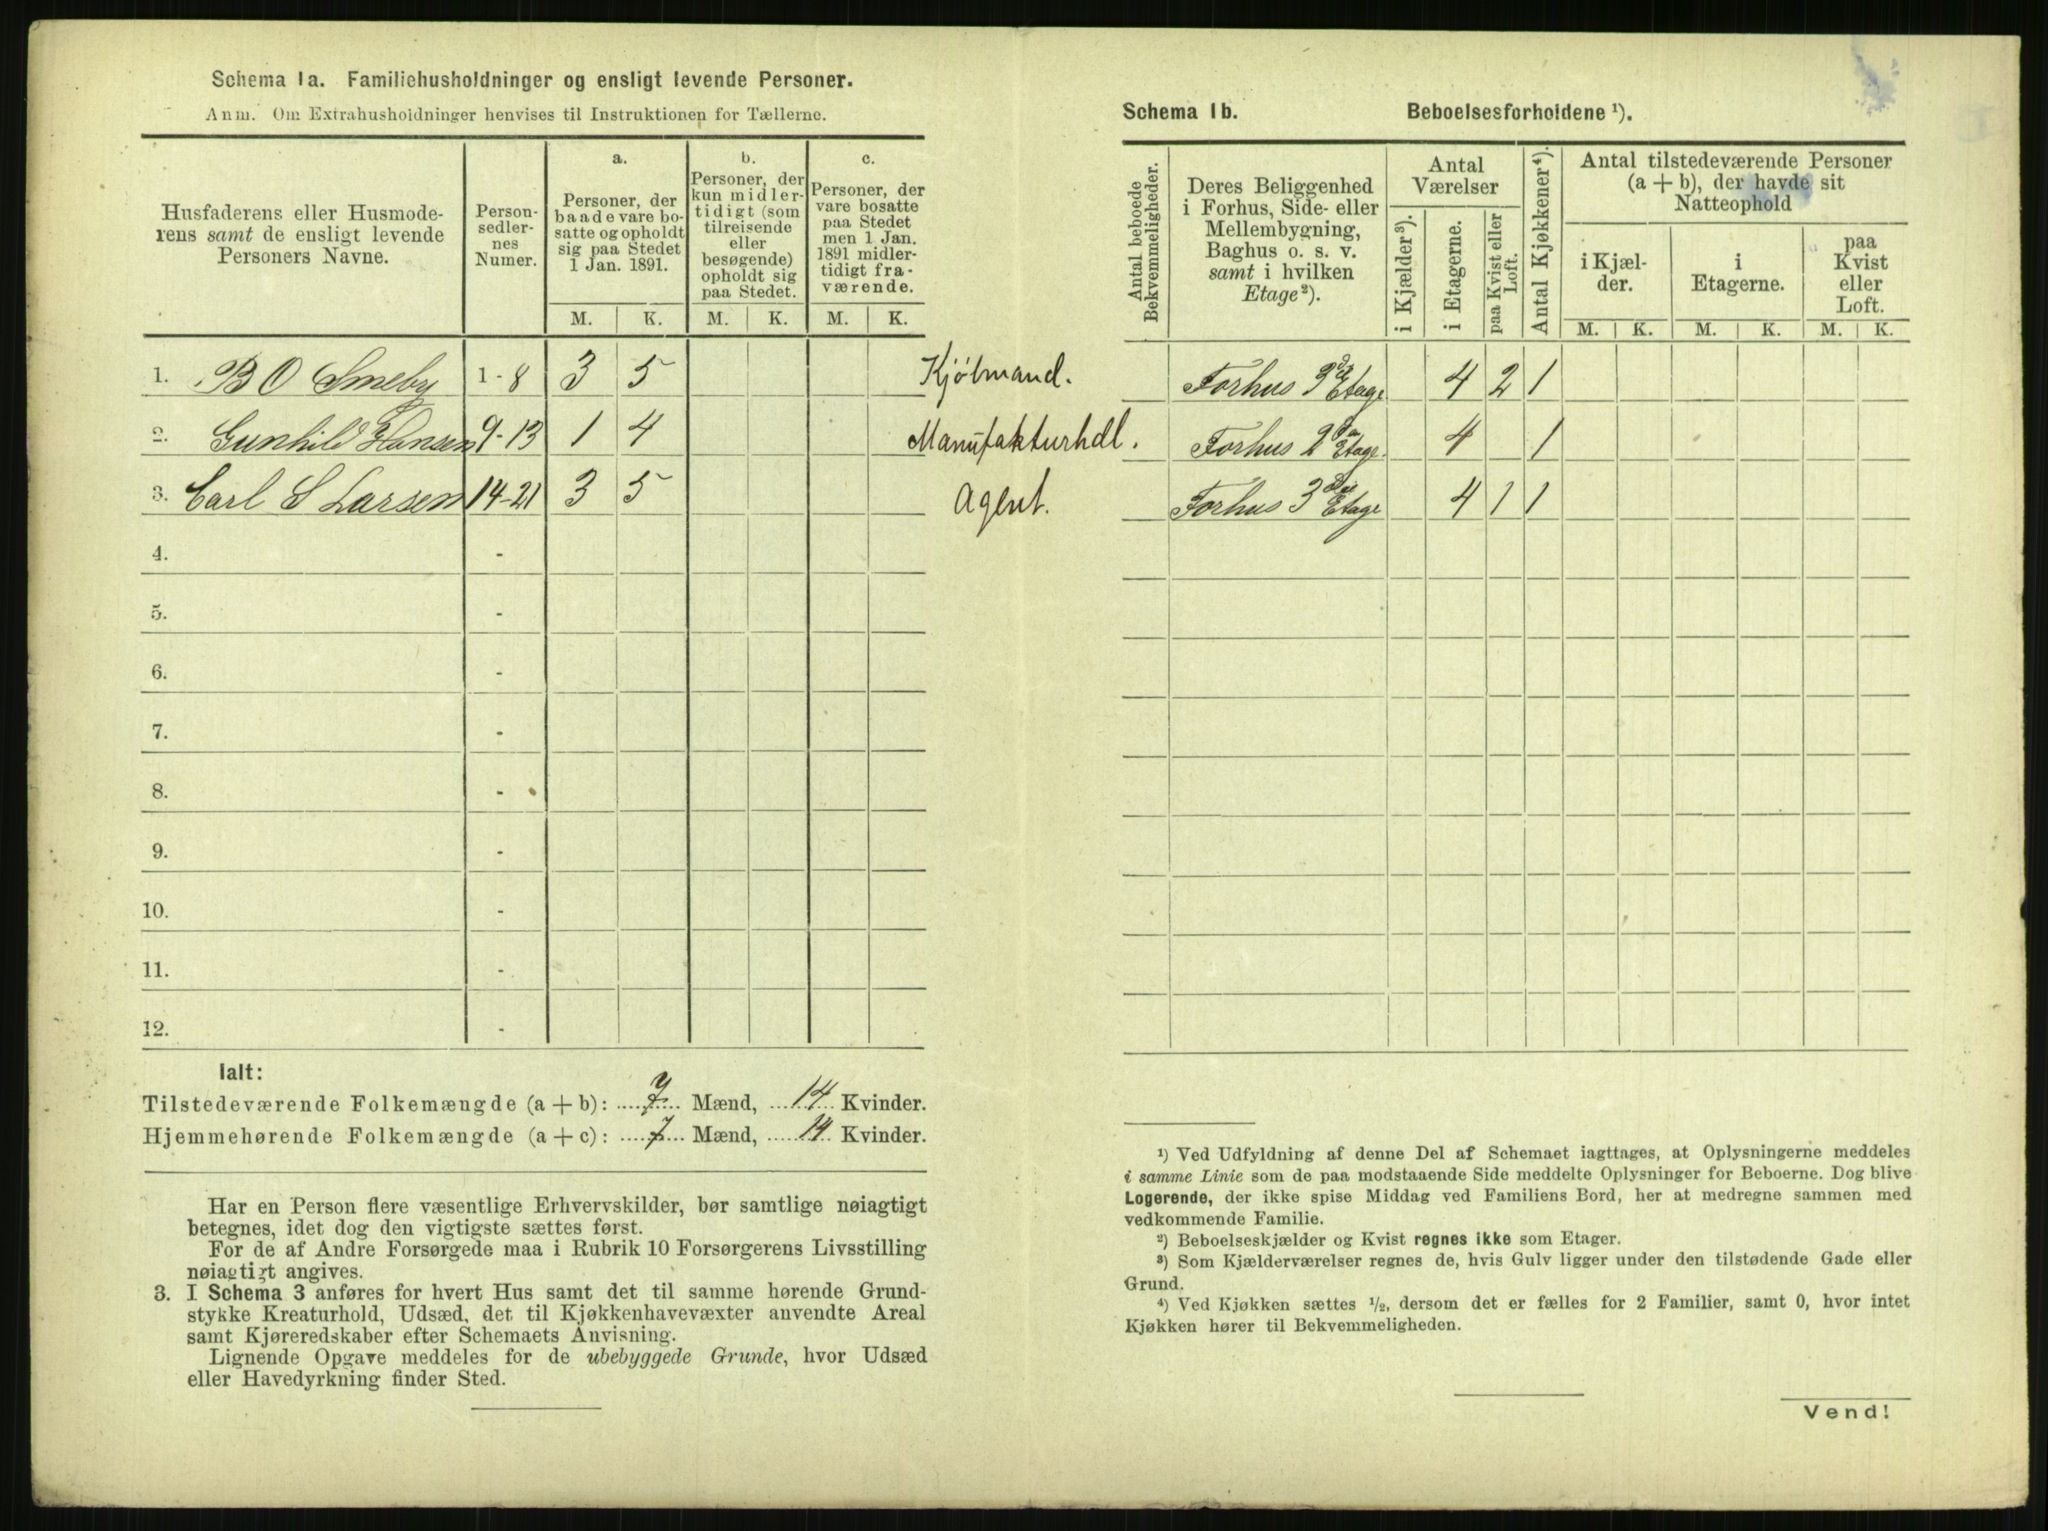 Schema 1a. Familiehusholdninger og ensligt levende Personer.
Anm. Om Extrahusholdninger henvises til Instruktionen for Tællerne.
Husfaderens eller Husmode-
rens samt de ensligt levende
Personers Navne.
Person-
sedler-
nes
Numer.
a.
Personer, der
baade vare bo-
satte og opholdt
sig paa Stedet
1 Jan. 1891.
b.
Personer, der
kun midler-
tidigt (som
tilreisende
eller
besøgende)
opholdt sig
paa Stedet.
c.
Personer, der
vare bosatte
paa Stedet
men 1 Jan.
1891 midler-
tidigt fra-
værende.
M. K. M. K. M. K.
1. B O Smeby 1-8 3 5 Kjøbmand.
2. Gunhild Hansen 9-13 1 4 Manufakturhdl.
3. Carl S Larsen 14-21 3 5 Agent.
4. -
5. -
6. -
7. -
8. -
9. -
10. -
11. -
12. -
Ialt:
Tilstedeværende Folkemængde (a + b): 7 Mænd, 14 Kvinder.
Hjemmehørende Folkemængde (a + c): 7 Mænd, 14 Kvinder.
Har en Person flere væsentlige Erhvervskilder, bør samtlige nøiagtigt
betegnes, idet dog den vigtigste sættes først.
For de af Andre Forsørgede maa i Rubrik 10 Forsørgerens Livsstilling
nøiagtigt angives.
3. I Schema 3 anføres for hvert Hus samt det til samme hørende Grund-
stykke Kreaturhold, Udsæd, det til Kjøkkenhavevæxter anvendte Areal
samt Kjøreredskaber efter Schemaets Anvisning.
Lignende Opgave meddeles for de ubebyggede Grunde, hvor Udsæd
eller Havedyrkning finder Sted.
Schema 1b. Beboelsesforholdene ¹).
Antal beboede
Bekvemmeligheder.
Deres Beliggenhed
i Forhus, Side- eller
Mellembygning,
Baghus o. s. v.
samt i hvilken
Etage²).
Antal
Værelser
i Kjælder³).
i Etagerne.
paa Kvist eller
Loft.
Antal Kjøkkener⁴).
Antal tilstedeværende Personer
(a + b), der havde sit
Natteophold
i Kjæl-
der.
i
Etagerne.
paa
Kvist
eller
Loft.
M. K. M. K. M. K.
Forhus Etage 4 2 1
Forhus 2 Etage 4 1
Forhus 3 Etage 4 1 1
¹) Ved Udfyldning af denne Del af Schemaet iagttages, at Oplysningerne meddeles
i samme Linie som de paa modstaaende Side meddelte Oplysninger for Beboerne. Dog blive
Logerende, der ikke spise Middag ved Familiens Bord, her at medregne sammen med
vedkommende Familie.
²) Beboelseskjælder og Kvist regnes ikke som Etager.
³) Som Kjælderværelser regnes de, hvis Gulv ligger under den tilstødende Gade eller
Grund.
⁴) Ved Kjøkken sættes ¹/₂, dersom det er fælles for 2 Familier, samt 0, hvor intet
Kjøkken hører til Bekvemmeligheden.
Vend!